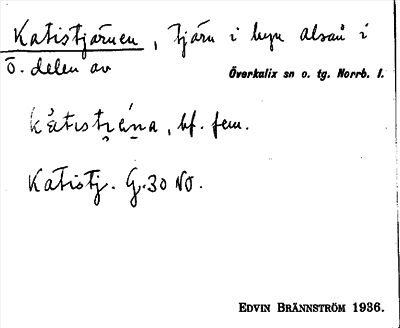 Katistjärnen, tjärn i byn Alsån i
Ö. delen av Överkalix sn o. tg. Norrb. l.
kåtistjǽ̣na, bf. fem.
Katistj. G.30 NO.
EDVIN BRÄNNSTRÖM 1936.